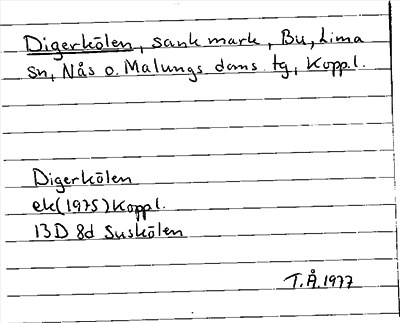 Digerkölen, sank mark, Bu, Lima
sn, Nås o. Malungs doms. tg, Koppl.
Digerkölen
ek(1975)Koppl.
13D 8d Suskölen
T.Å.1977